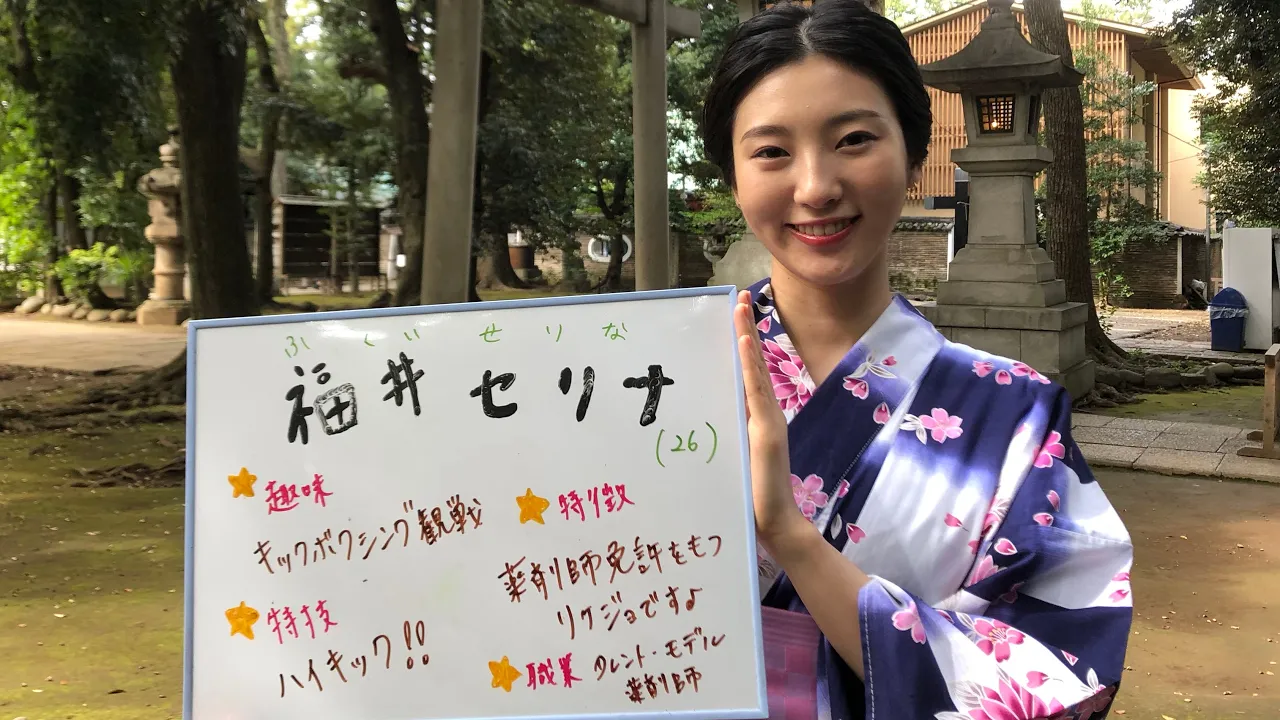 ふくい せりな
福井 セリナ
(26)
趣味
キックボクシング観戦
特技
ハイキック!!
特徴
薬剤師免許をもつ
リケジョです♪
職業 タレント・モデル
薬剤師